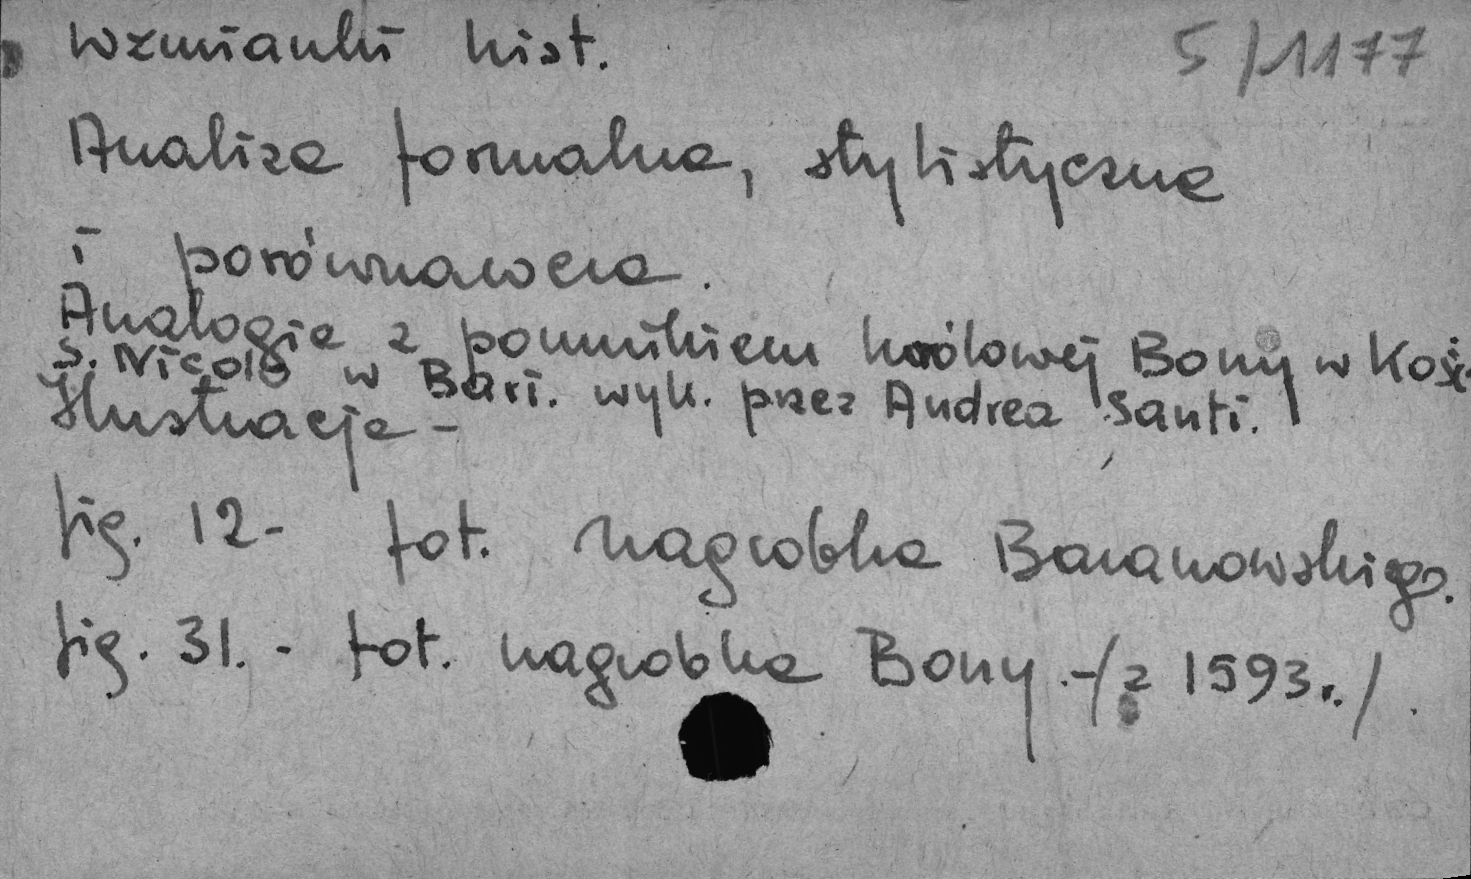 Wzmianki hist. 5/1177
Analiza formalna, stylistyczna
i porównawcza.
Analogia z pomnikiem królowej Bony w Kość.
S. Nicolo w Bari. wyk. przez Andrea Santi.
Ilustracje -
fig. 12- fot. nagrobka Baranowskiego.
fig. 31. - fot. nagrobka Bony.-/z 1593r./.